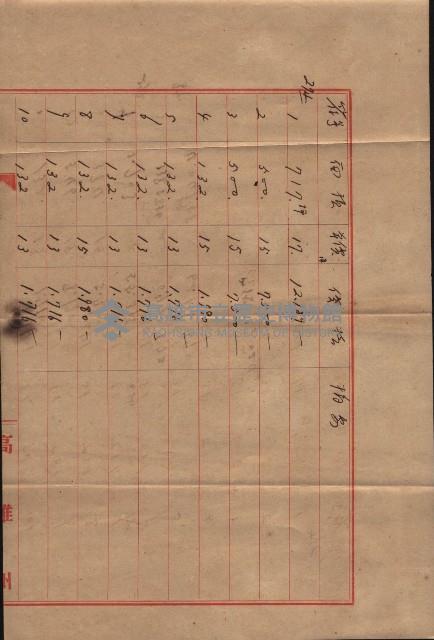 面積 單價 價格
1 717. 17. 12.189—
2 500. 15 7.500—
3 500. 15 7.500—
4 132 15 1.980—
5 132. 13 1.716—
6 132. 13 1.716—
7 132. 13 1.716—
8 132. 15 1.980—
9 132 13 1.716—
10 132 13 1.716—
高雄州
高雄市立歷史博物館
KAOHSIUNG MUSEUM OF HISTORY